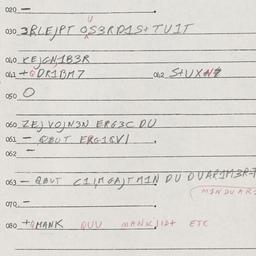 020 —
030 3RLEJPT OS3RD1S+TU1T
U
040 KEJGN1B3R
041 +QDR1BM7 042 S+UXN7
050 O
060 ZEJVOJN3N ERG3C DU
061 — QBUT ERG1&V1
062 —
063 — QBUT C1IMGAJTM1N DU DUAR1M3R-T
M1NDUAR
070 —
080 +QMANK QUU MANK1Q+ ETC